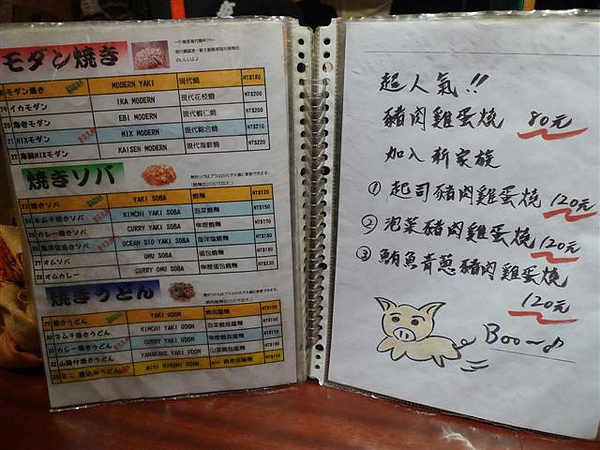 モダン焼き
モダン焼き MODERN YAKI 現代燒 NT$180
イカモダン IKA MODERN 現代花枝燒 NT$200
海老モダン EBI MODERN 現代蝦仁燒 NT$200
MIXモダン MIX MODERN 現代綜合燒 NT$210
海鮮MIXモダン KAISEN MODERN 現代海鮮燒 NT$220
焼きソバ
焼きソバ YAKI SOBA 炒麵
キムチ焼きソバ KIMCHI YAKI SOBA 泡菜炒麵
カレー焼きソバ CURRY YAKI SOBA 咖哩炒麵
海洋塩焼きソバ OCEAN SIO YAKI SOBA 海洋鹽炒麵
オムソバ OMU SOBA 蛋包炒麵
オムカレー CURRY OMU SOBA 咖哩蛋包炒麵
焼きうどん
焼きうどん YAKI UDON 炒烏龍麵
キムチ焼きうどん KIMCHI YAKI UDON 泡菜炒烏龍麵
カレー焼きうどん CURRY YAKI UDON 咖哩炒烏龍麵
山掛け焼きうどん YAMAKAKE YAKI UDON 山藥炒烏龍麵
MINI NIKOMI UDON
超人氣!!
豬肉雞蛋燒 80元
加入新家族
① 起司豬肉雞蛋燒 120元
② 泡菜豬肉雞蛋燒 120元
③ 鮪魚青蔥豬肉雞蛋燒
120元
Boo~♪